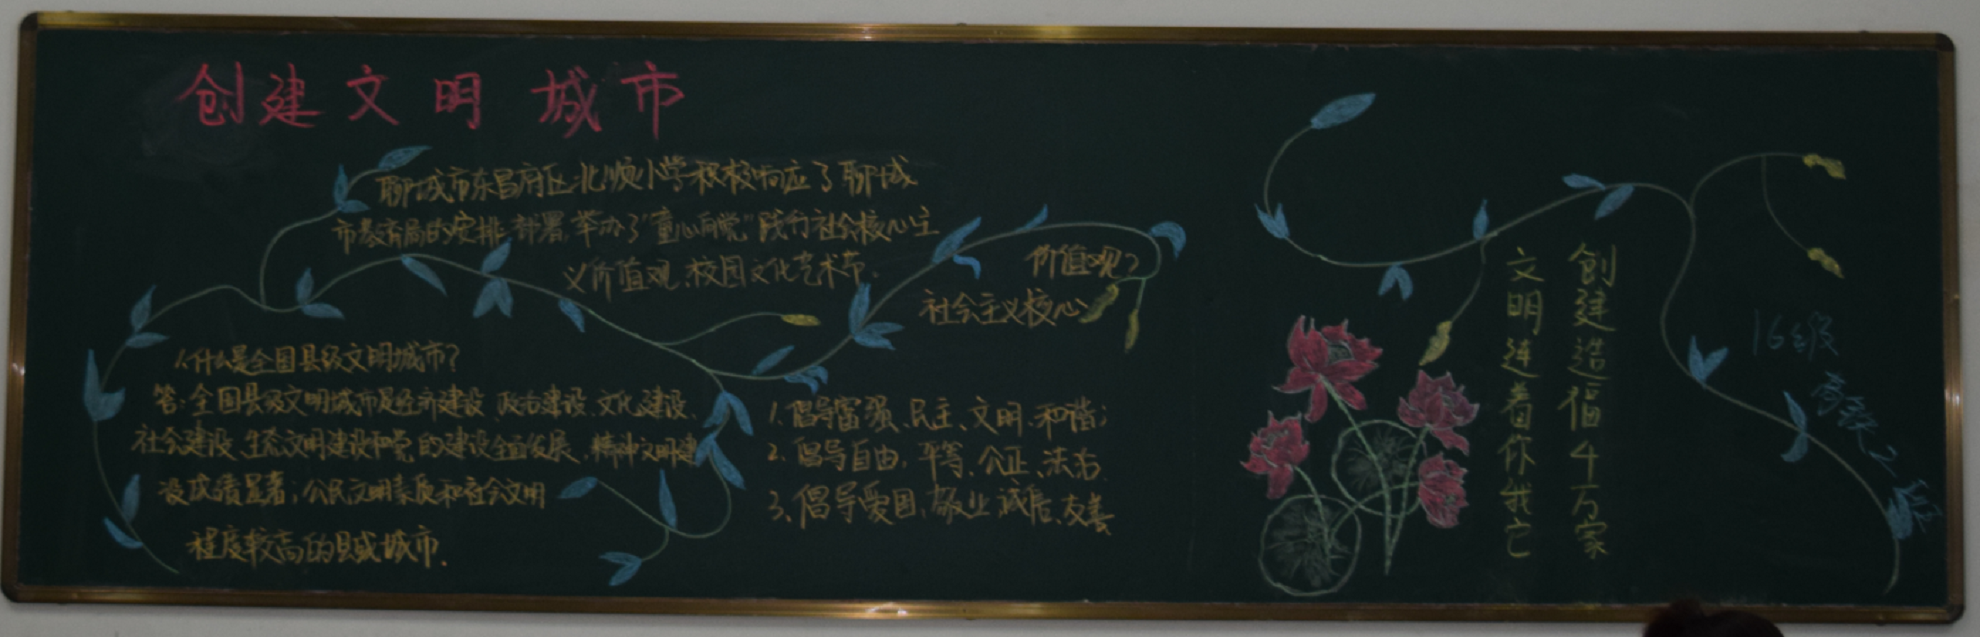 创建文明城市
聊城市东昌府区北顺小学积极响应了聊城
市教育局的安排部署,举办了"童心向党"践行社会核心主
义价值观、校园文化艺术节.
价值观?
社会主义核心
1.什么是全国县级文明城市?
答:全国县级文明城市是经济建设、政治建设、文化建设、
社会建设、生态文明建设和党的建设全面发展,精神文明建
设成绩显著;公民文明素质和社会文明
程度较高的县城城市.
1.倡导富强、民主、文明、和谐;
2.倡导自由,平等、公正、法治
3、倡导爱国,敬业,诚信、友善
创建造福千万家
文明连着你我它
16级
2班